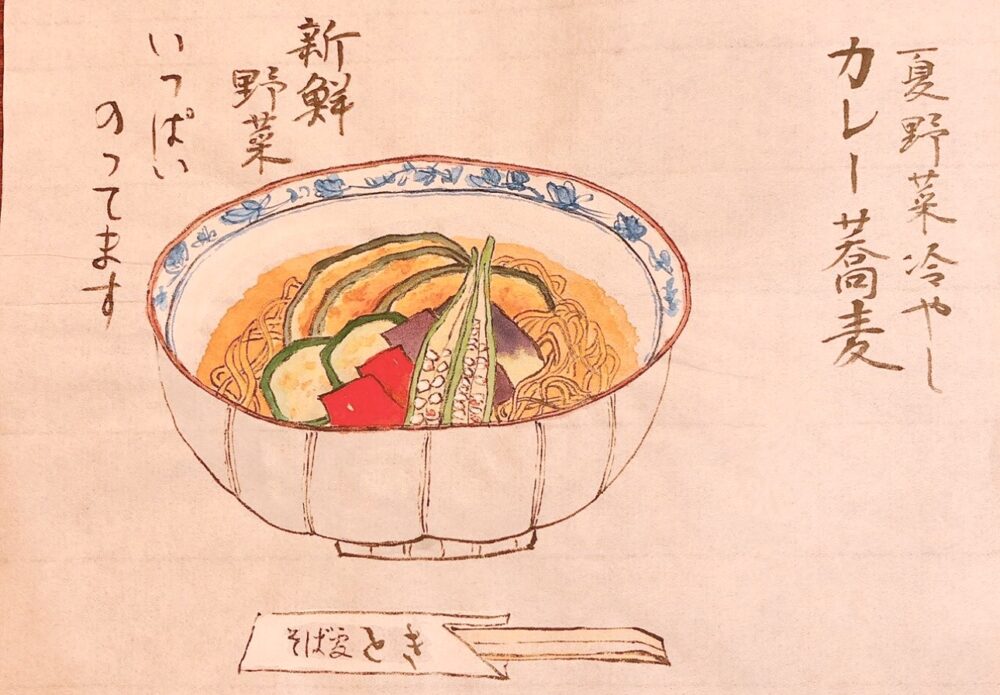 夏野菜冷やし
カレー蕎麦
新鮮
野菜
いっぱい
のってます
そば
とき